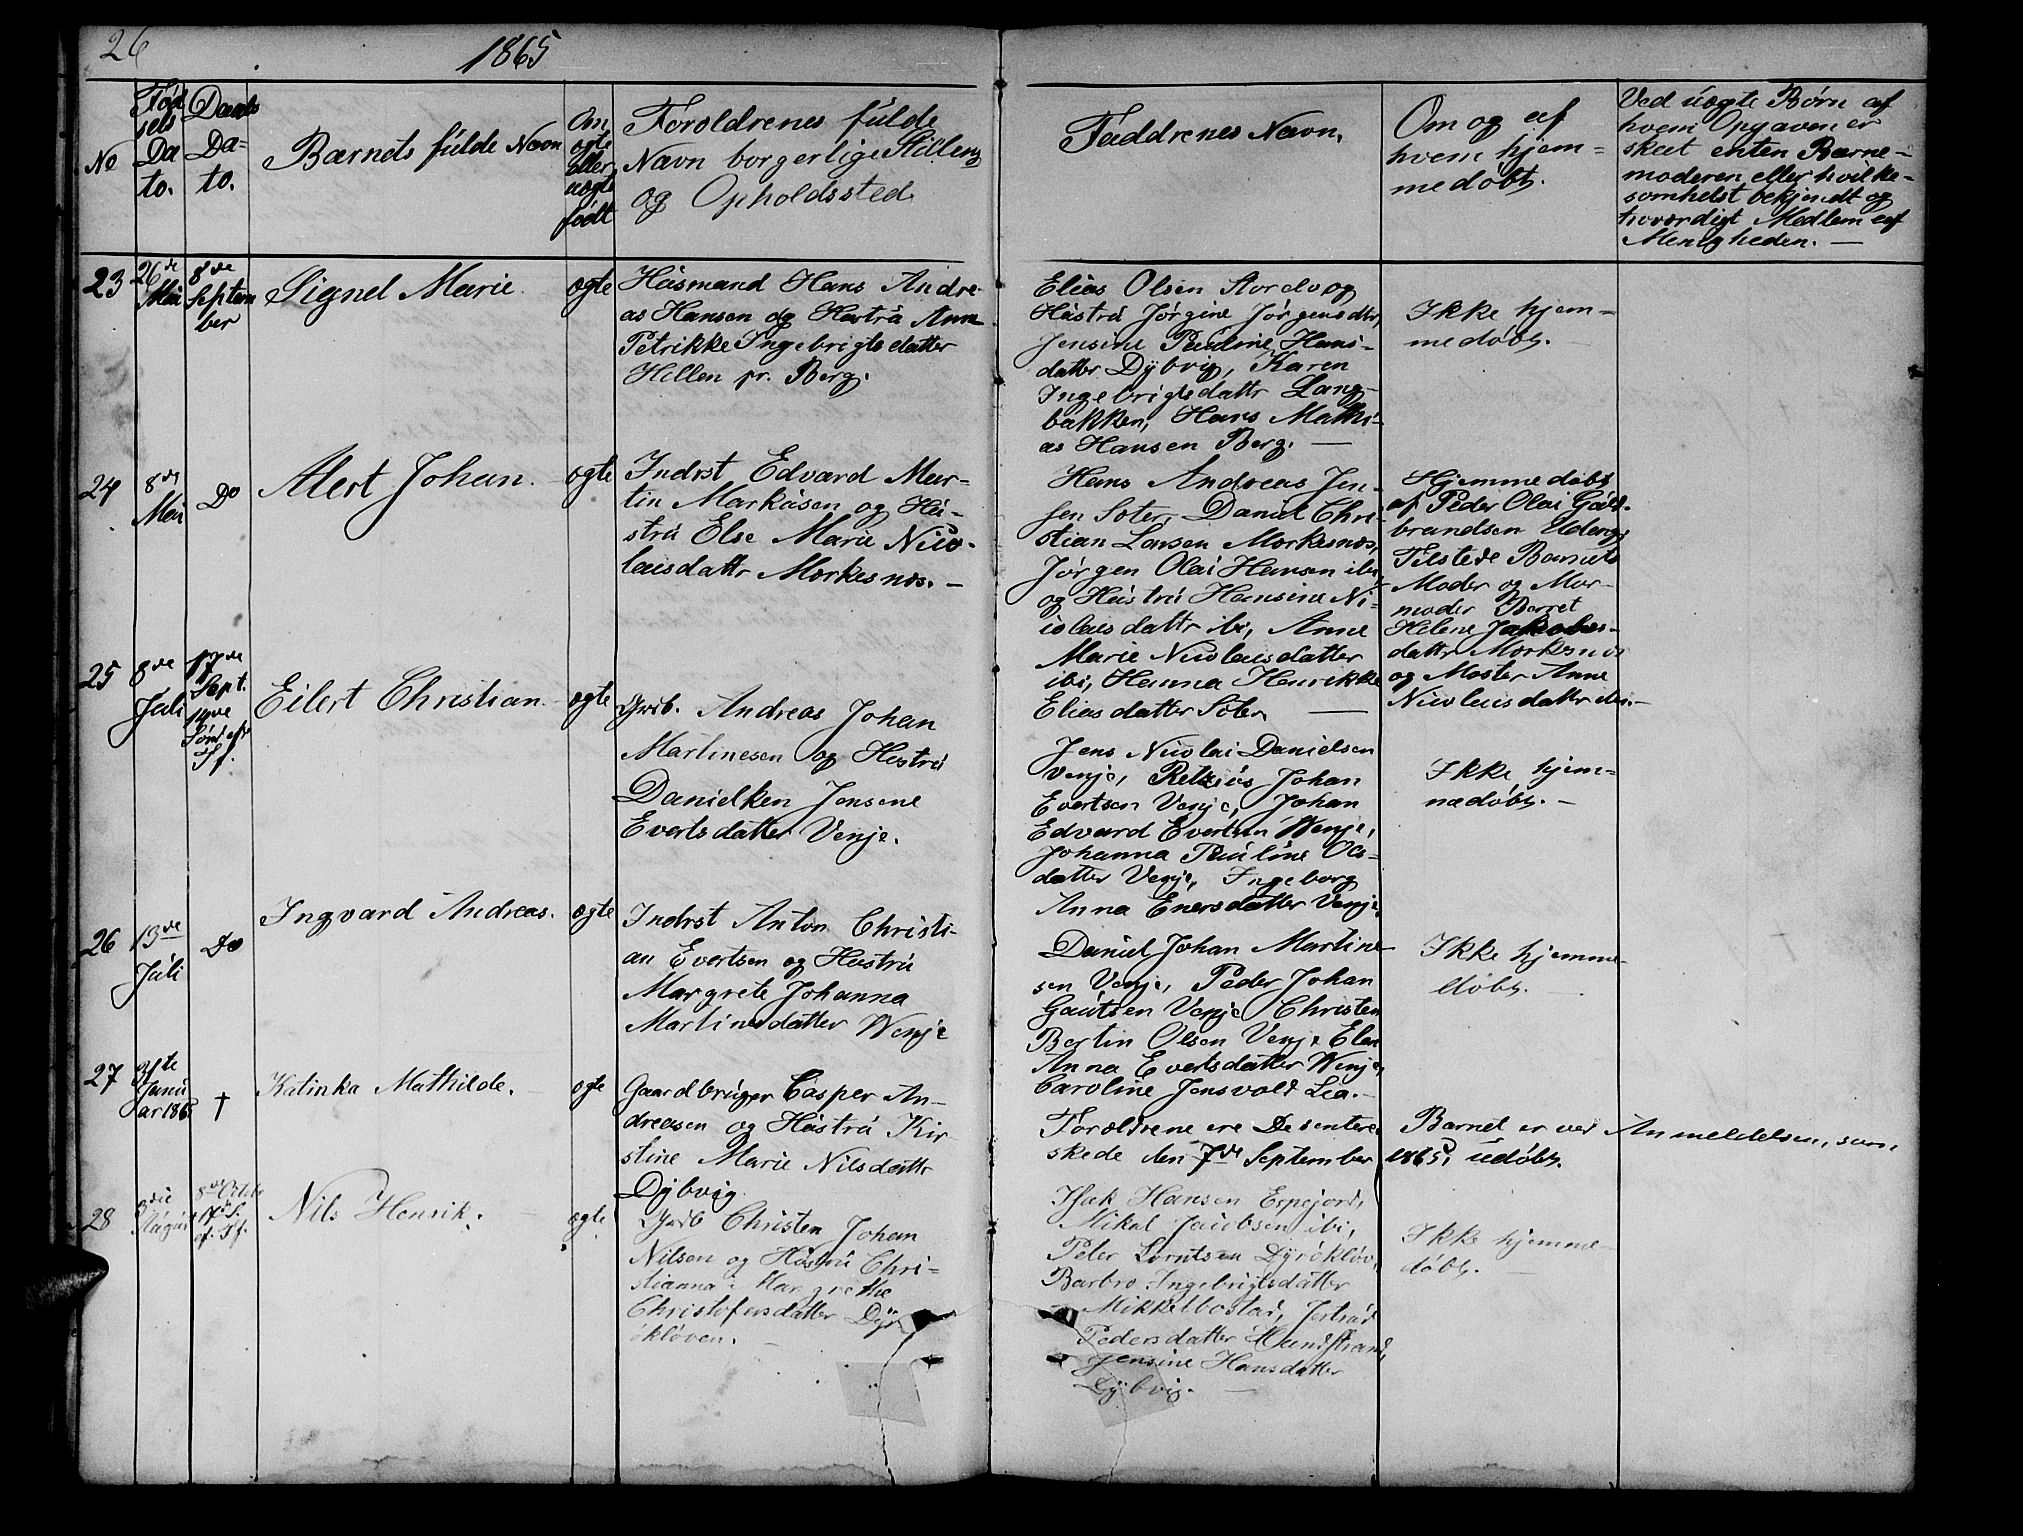 26
1865
No
Fød
sels
Da
to.
Daabs
Da-
to.
Barnets fulde Navn
Om
ægte
eller
uægte
født
Forældrenes fulde
Navn borgerlige Stilling
og Opholdssted.
Faddrenes Navn.
Om og af
hvem hjem=
medøbt.
Ved uægte Børn af
hvem Opgaven er
skeet enten Barne-
moderen eller hvilke-
somhelst bekjendt og
troværdigt Medlem af
Menigheden. —
23
26de
Mai
8de
Septem
ber
Signel Marie.
ægte
Husmand Hans Andre-
as Hansen og Hustru Anne
Petrikke Ingebrigtsdatter
Hillen pr. Berg.
Elias Olsen Stordvog
Hustru Jørgine Jørgensdtr,
Jensine Pauline Hans-
datter Dybvig, Karen
Ingebrigtsdattr Lang-
bakken, Hans Mathi-
as Hansen Berg. —
Ikke hjem=
medøbt. —
24
8de
Mai
Do
Alert Johan.
ægte
Indrst Edvard Mar-
tin Markusen og Hu-
stru Else Marie Nico-
laisdattr Morkesnæs. —
Hans Andreas Jen-
sen Soter, Daniel Chri-
stian Larsen Morkesnæs,
Jørgen Olai Hansen ibi
og Hustru Hansine Ni-
colaisdattr ibi, Anne
Marie Nicolaisdatter
ibi, Hanna Henrikke
Eliasdatter Soter. —
Hjemmedøbt
af Peder Olai Guld-
brandsen
Tilstede Barnets
Moder og Mor-
moder Berret
Helene Jakobs-
datter Morkesnæs
og Moster Anne
Nicolaisdatter ibi. —
25
8de
Juli
17de
Sept.
14de
Sønd. eft.
Tf.
Eilert Christian.
ægte
Grdb. Andreas Johan
Martinesen og Hustru
Danielken Jensine
Evertsdatter Venje.
Jens Nicolai Danielsen
Venje, Johan
Evertsen Venje, Johan
Edvard Evertsen Wenje,
Johanna Pauline Ols-
datter Venje, Ingeborg
Anna Enersdatter Venje
Ikke hjem=
medøbt. —
26
13de
Juli
Do
Ingvard Andreas.
ægte
Indrst Anton Christi-
an Evertsen og Hustru
Margrete Johanna
Martinesdatter Wenje
Daniel Johan Martine-
sen Venje, Peder Johan
Gautsen Venje Christen
Bertin Olsen Venje Elen
Anna Evertsdatter Winje,
Caroline Jensvold Lia. —
Ikke hjemme-
døbt. —
27
31te
Janu
ar 1865
†
Katinka Mathilde.
ægte
Gaardbruger Casper An-
dreasen og Hustru Kir-
stine Marie Nilsdattr
Dybvig.
Forældrene ere Desentere,
skede den 7de September
Barnet er ved Anmeldelsen, som
1865, udøbt.
28
August
8de Octob
17de S.
ef. Tf.
Nils Henrik.
ægte
Grdb Christen Johan
Nilsen og Hustru Chri-
stianna Margrethe
Christofersdatter Dyr
økløven. —
Isak Hansen Espejord,
Mikal Jacobsen ibi,
Peter Lorntsen Dyrøkløv,
Barbro Ingebrigtsdatter
Mikkelbostad, Jertrud
Pedersdatter Hundstrand,
Jensine Hansdatter
Dybvig. —
Ikke hjemme-
døbt. —